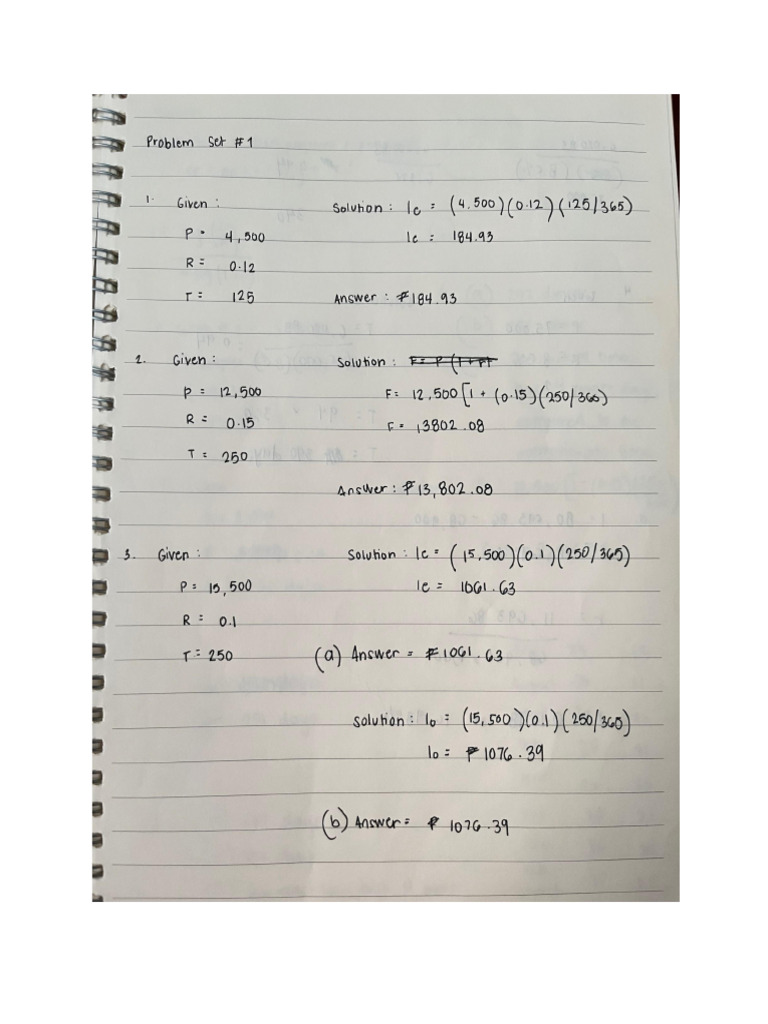 Problem Set #1
1. Given : Solution : Ic = (4,500)(0.12)(125/365)
P = 4,500 Ic = 184.93
R = 0.12
T = 125 Answer : ₱184.93
2. Given : Solution : F = P (1 + PT
P = 12,500 F = 12,500[1 + (0.15)(250/360)
R = 0.15 F = 13802.08
T = 250
Answer : ₱13,802.08
3. Given : Solution : Ic = (15,500)(0.1)(250/365)
P = 15,500 Ic = 1061.63
R = 0.1
T = 250 (a) Answer = ₱1061.63
Solution : Io = (15,500)(0.1)(250/360)
Io = ₱1076.39
(b) Answer = ₱1076.39